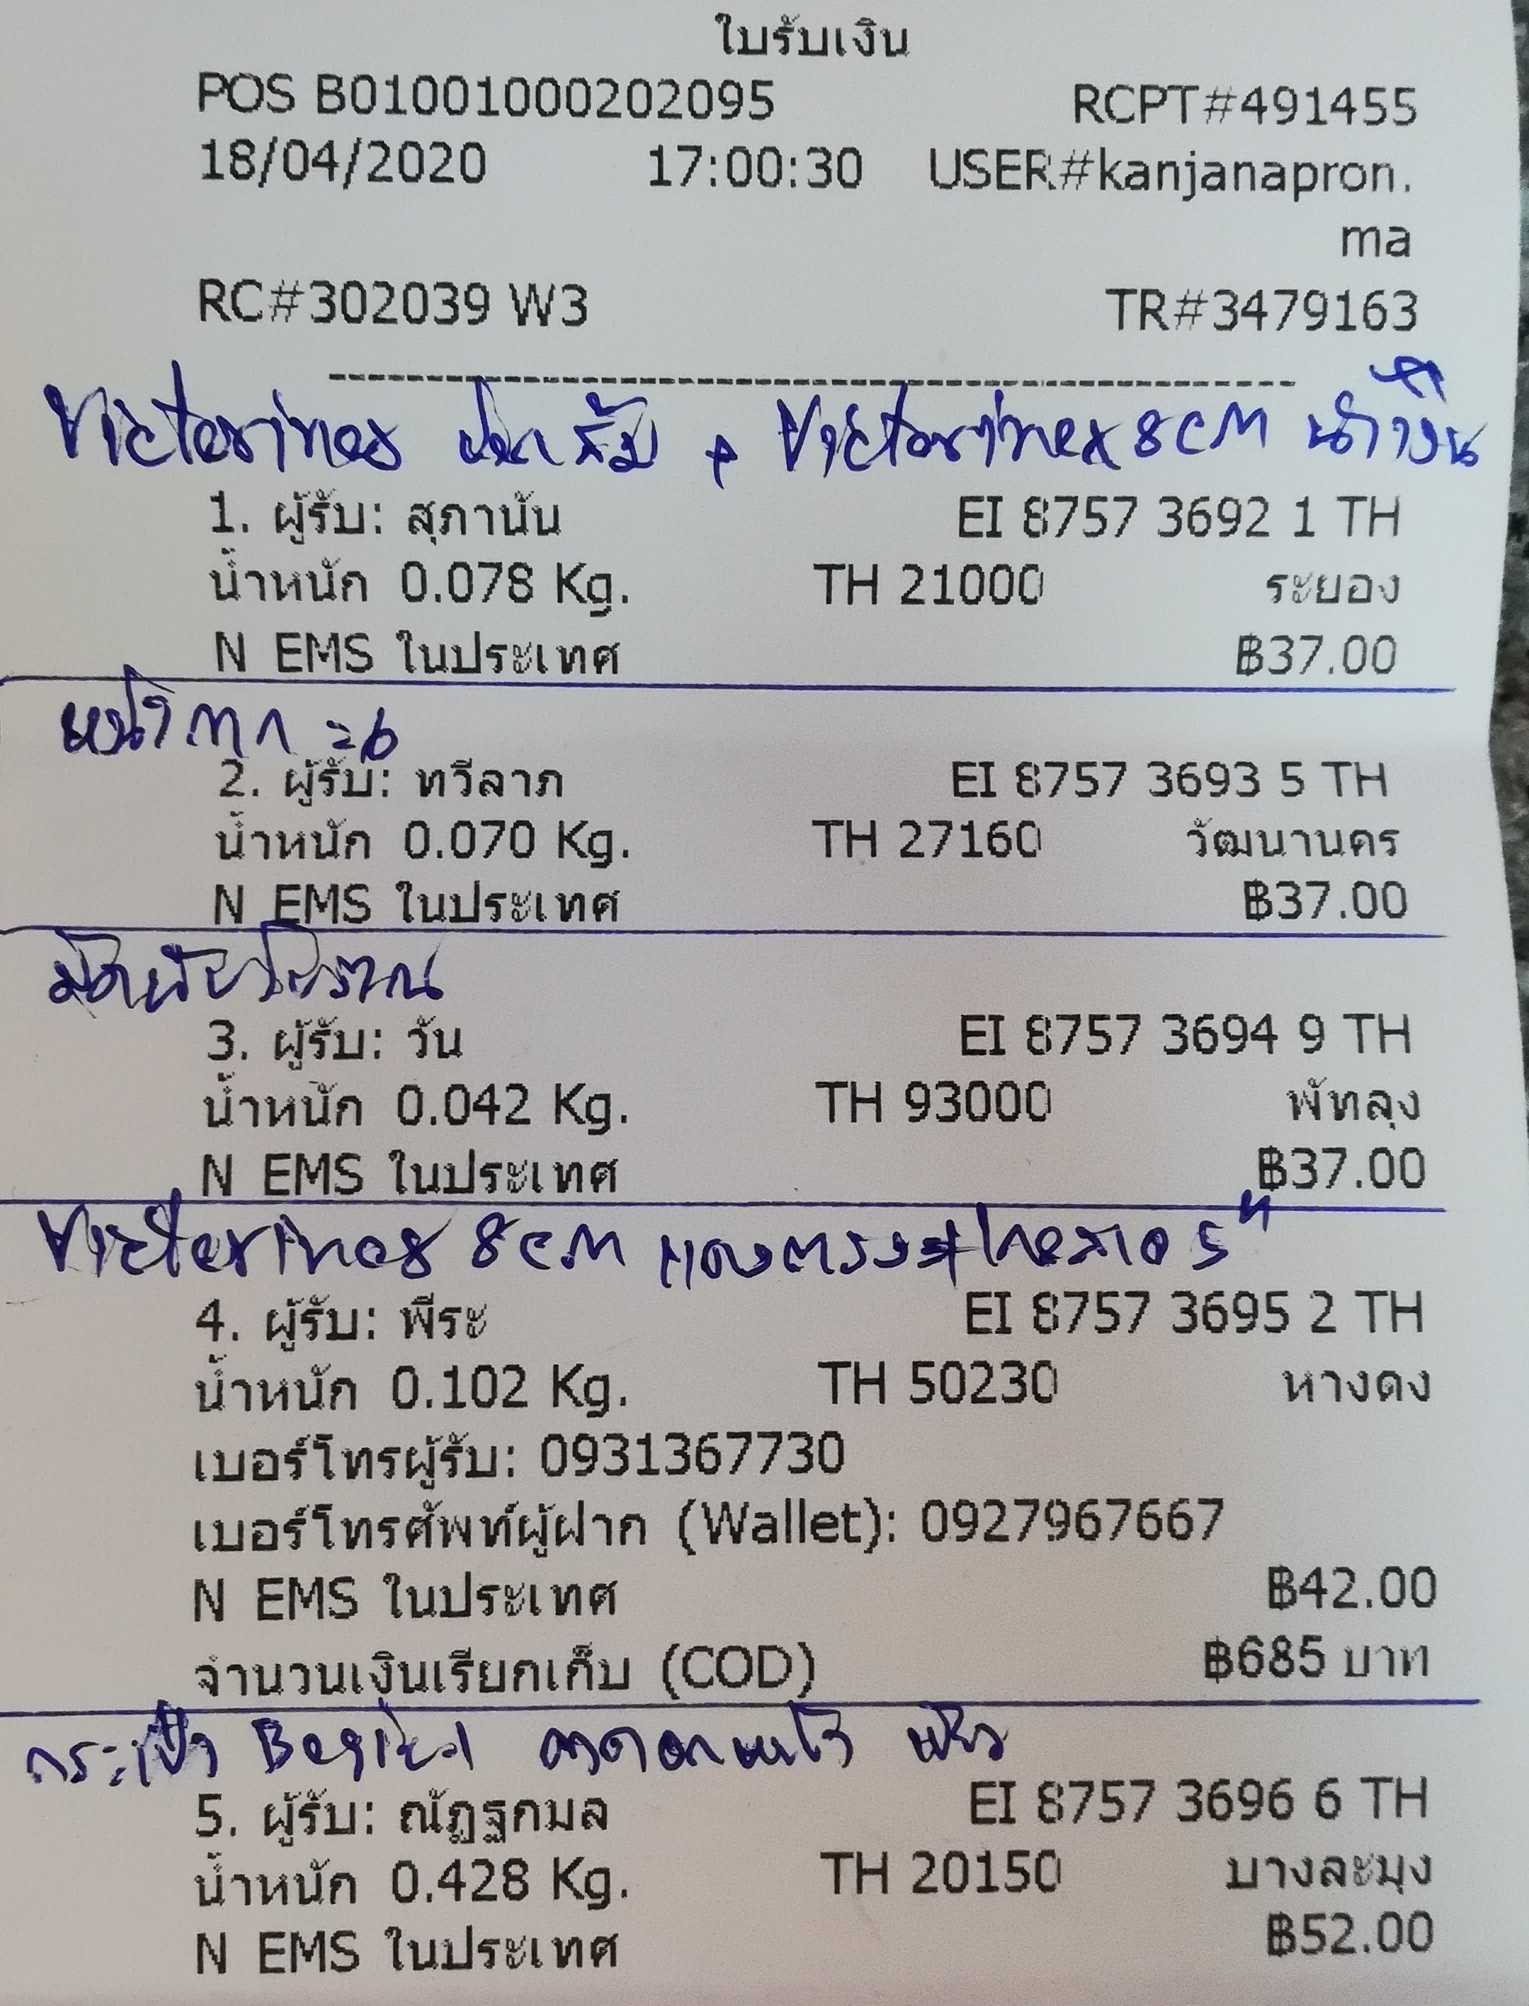 ใบรับเงิน
POS B01001000202095 RCPT#491455
18/04/2020 17:00:30 USER#kanjanapron.
ma
RC#302039 W3 TR#3479163
--------------------------------------------------
Victorinox ส้ม Victorinox 8cm น้ำเงิน
1. ผู้รับ: สุภานัน EI 8757 3692 1 TH
น้ำหนัก 0.078 Kg. TH 21000 ระยอง
N EMS ในประเทศ ฿37.00
หน้ากาก =6
2. ผู้รับ: ทวีลาภ EI 8757 3693 5 TH
น้ำหนัก 0.070 Kg. TH 27160 วัฒนานคร
N EMS ในประเทศ ฿37.00
มีดพับโบราณ
3. ผู้รับ: วัน EI 8757 3694 9 TH
น้ำหนัก 0.042 Kg. TH 93000 พัทลุง
N EMS ในประเทศ ฿37.00
Victorinox 8cm
4. ผู้รับ: พีระ EI 8757 3695 2 TH
น้ำหนัก 0.102 Kg. TH 50230 หางดง
เบอร์โทรผู้รับ: 0931367730
เบอร์โทรศัพท์ผู้ฝาก (Wallet): 0927967667
N EMS ในประเทศ ฿42.00
จำนวนเงินเรียกเก็บ (COD) ฿685 บาท
กระเป๋า คาดอก
5. ผู้รับ: ณัฏฐกมล EI 8757 3696 6 TH
น้ำหนัก 0.428 Kg. TH 20150 บางละมุง
N EMS ในประเทศ ฿52.00